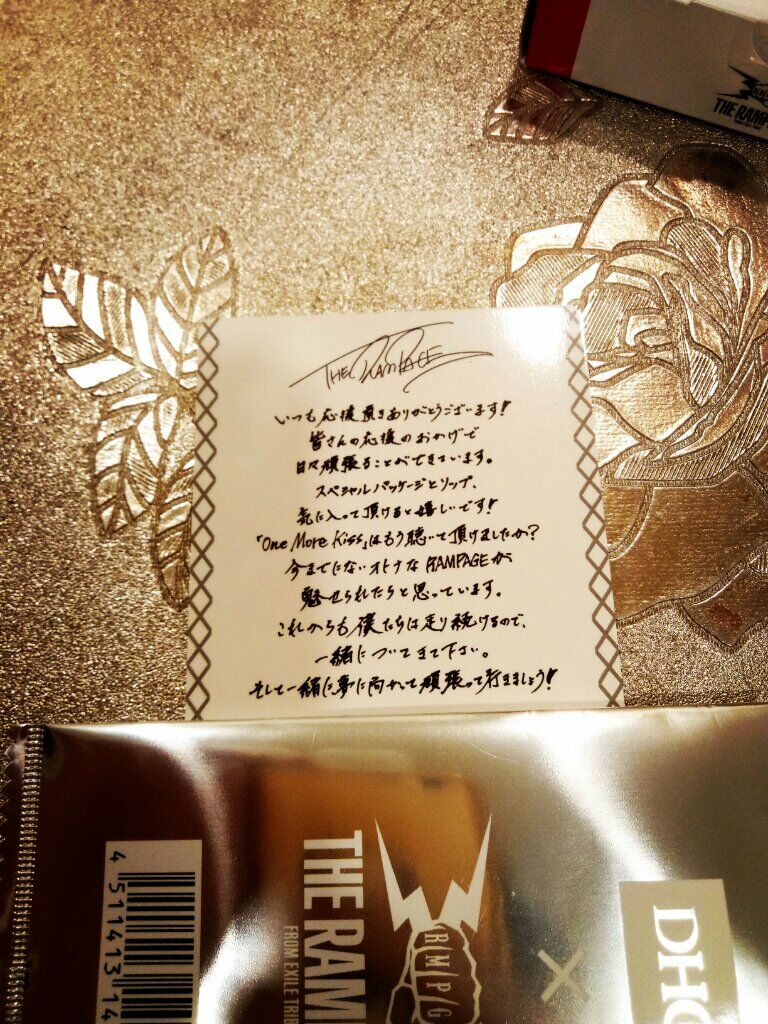 THE RAMP
THE RAMPAGE
いつも応援頂きありがとうございます!
皆さんの応援のおかげで
日々頑張ることができています。
スペシャルパッケージとリップ、
気に入って頂けると嬉しいです!
「One More Kiss」はもう聴いて頂けましたか?
今までにないオトナなRAMPAGEが
魅せられたらと思っています。
これからも僕たちは走り続けるので、
一緒についてきて下さい。
そして一緒に夢に向かって頑張って行きましょう!
4 511413 14
THE RAM
FROM EXILE TRIB
R/M/P/G
×
DHC